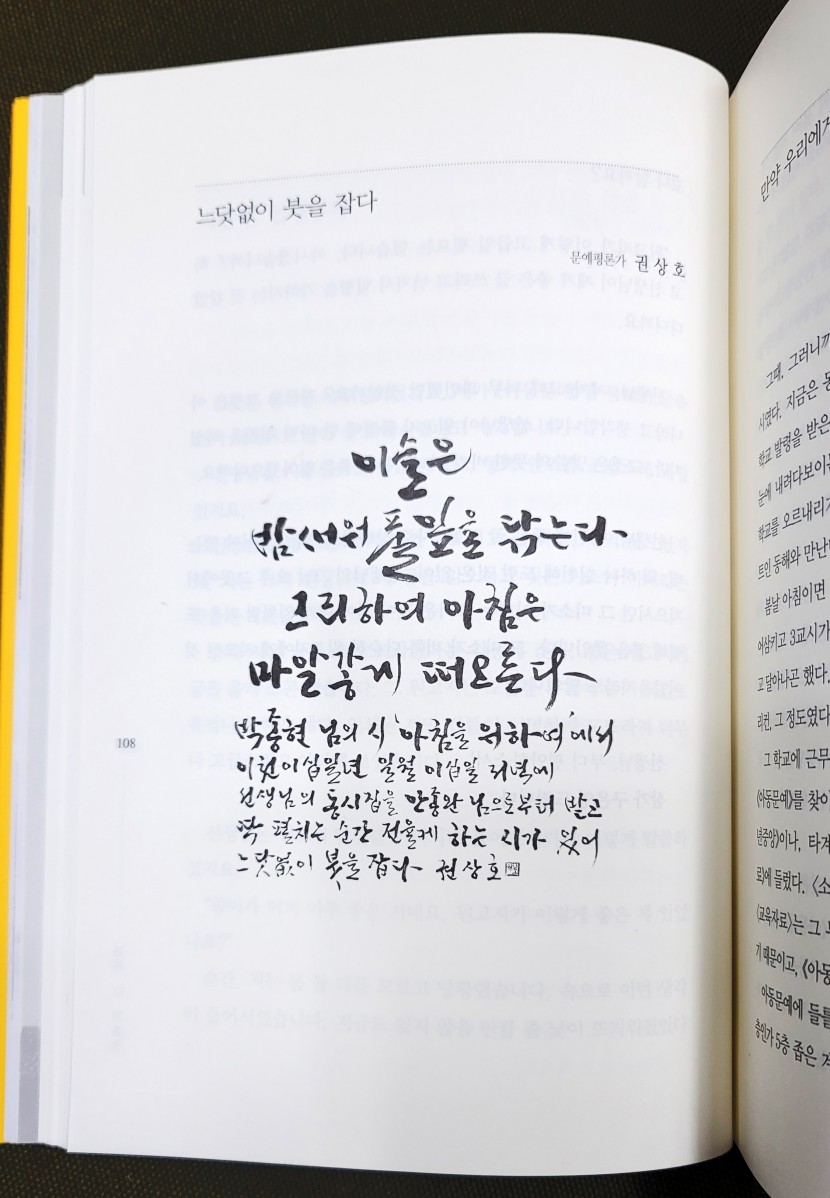 느닷없이 붓을 잡다
문예평론가 권상호
이슬은
밤새워 풀잎을 닦는다
그리하여 아침은
마알갛게 떠오른다
박종현 님의 시 '아침을 위하여'에서
이천이십일년 일월 이십일 저녁에
선생님의 동시집을 안종완 님으로부터 받고
딱 펼치는 순간 전율케 하는 시가 있어
느닷없이 붓을 잡다 권상호
108
만약 우리에게
그때, 그러니까
시였다. 지금은 동
학교 발령을 받은
눈에 내려다보이는
학교를 오르내리
트인 동해와 만난
봄날 아침이면
어삼키고 3교시가
고 달아나곤 했다.
리컨, 그 정도였다
그 학교에 근무
《아동문예》를 찾아
년중앙》이나, 타계
료》에 들렀다. 《소
《교육자료》는 그
기 때문이고, 《아동
아동문예에 들를
층인가 5층 좁은 계